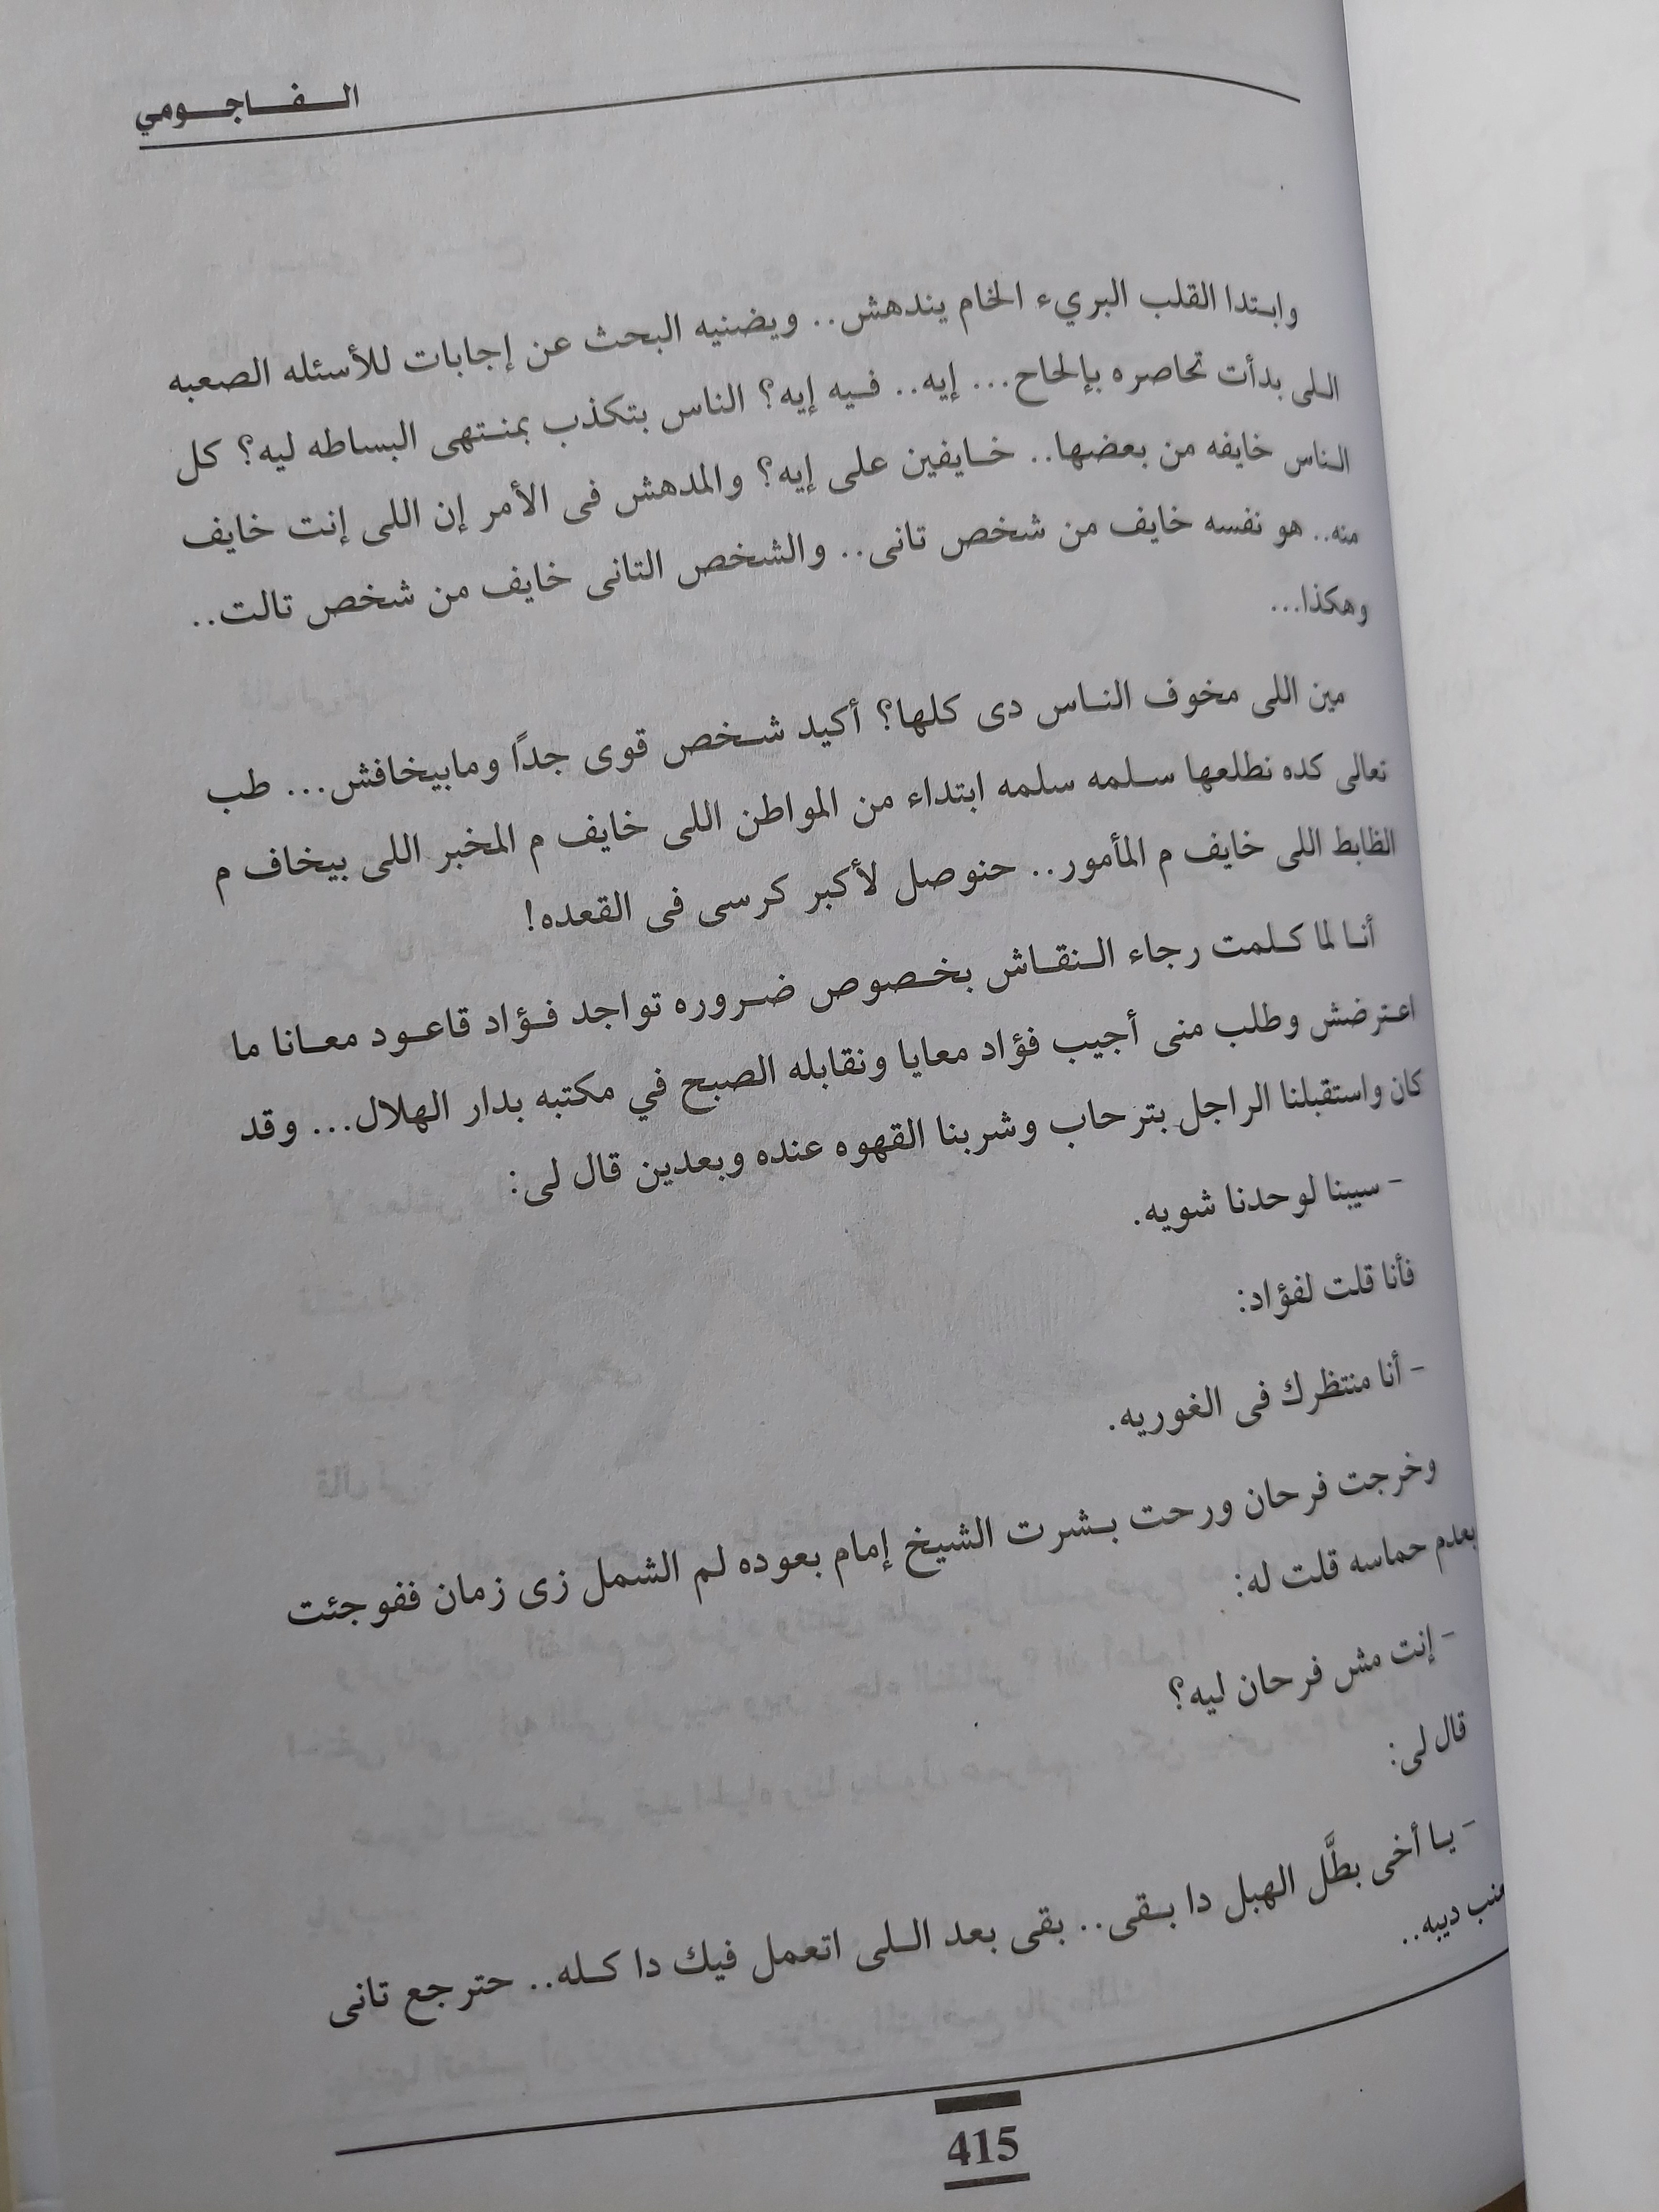 الفاجومي
وابتدا القلب البريء الخام يندهش.. ويضنيه البحث عن إجابات للأسئله الصعبه
اللى بدأت تحاصره بإلحاح... إيه.. فيه إيه؟ الناس بتكذب بمنتهى البساطه ليه؟ كل
الناس خايفه من بعضها.. خايفين على إيه؟ والمدهش فى الأمر إن اللى إنت خايف
منه.. هو نفسه خايف من شخص تانى.. والشخص التانى خايف من شخص تالت..
وهكذا...
مين اللى مخوف الناس دى كلها؟ أكيد شخص قوى جدًا ومابيخافش... طب
تعالى كده نطلعها سلمه سلمه ابتداء من المواطن اللى خايف م المخبر اللى بيخاف م
الظابط اللى خايف م المأمور.. حنوصل لأكبر كرسى فى القعده!
أنا لما كلمت رجاء النقاش بخصوص ضروره تواجد فؤاد قاعود معانا ما
اعترضش وطلب منى أجيب فؤاد معايا ونقابله الصبح في مكتبه بدار الهلال... وقد
كان واستقبلنا الراجل بترحاب وشربنا القهوه عنده وبعدين قال لى:
- سيبنا لوحدنا شويه.
فأنا قلت لفؤاد:
- أنا منتظرك فى الغوريه.
وخرجت فرحان ورحت بشرت الشيخ إمام بعوده لم الشمل زى زمان ففوجئت
بعدم حماسه قلت له:
- إنت مش فرحان ليه؟
قال لى:
- يا أخى بطَّل الهبل دا بقى.. بقى بعد اللى اتعمل فيك دا كله.. حترجع تانى
عنب ديبه..
415